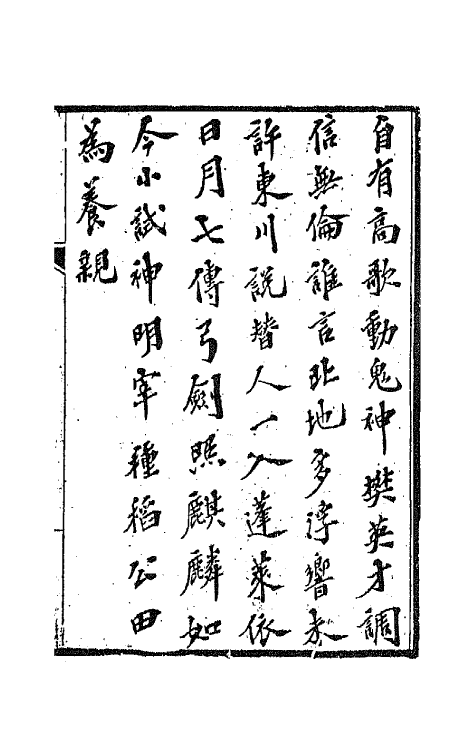 自有高歌動鬼神樊英才調
信無倫誰言北地多浮響未
許東川說替人一入蓬萊依
日月七傳弓劍照麒麟如
今小試神明宰種稻公田
為養親